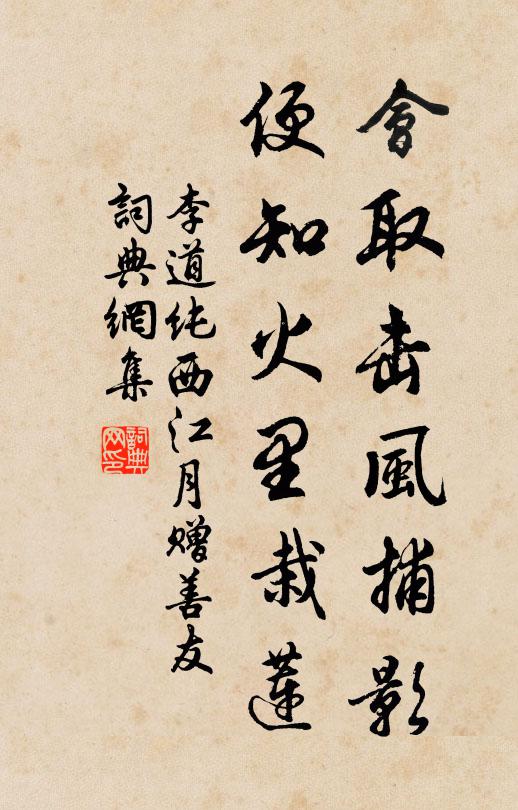 會取击風捕影
便知火里栽蓮
李道纯西江月赠善友
詞典網集
詞典网印